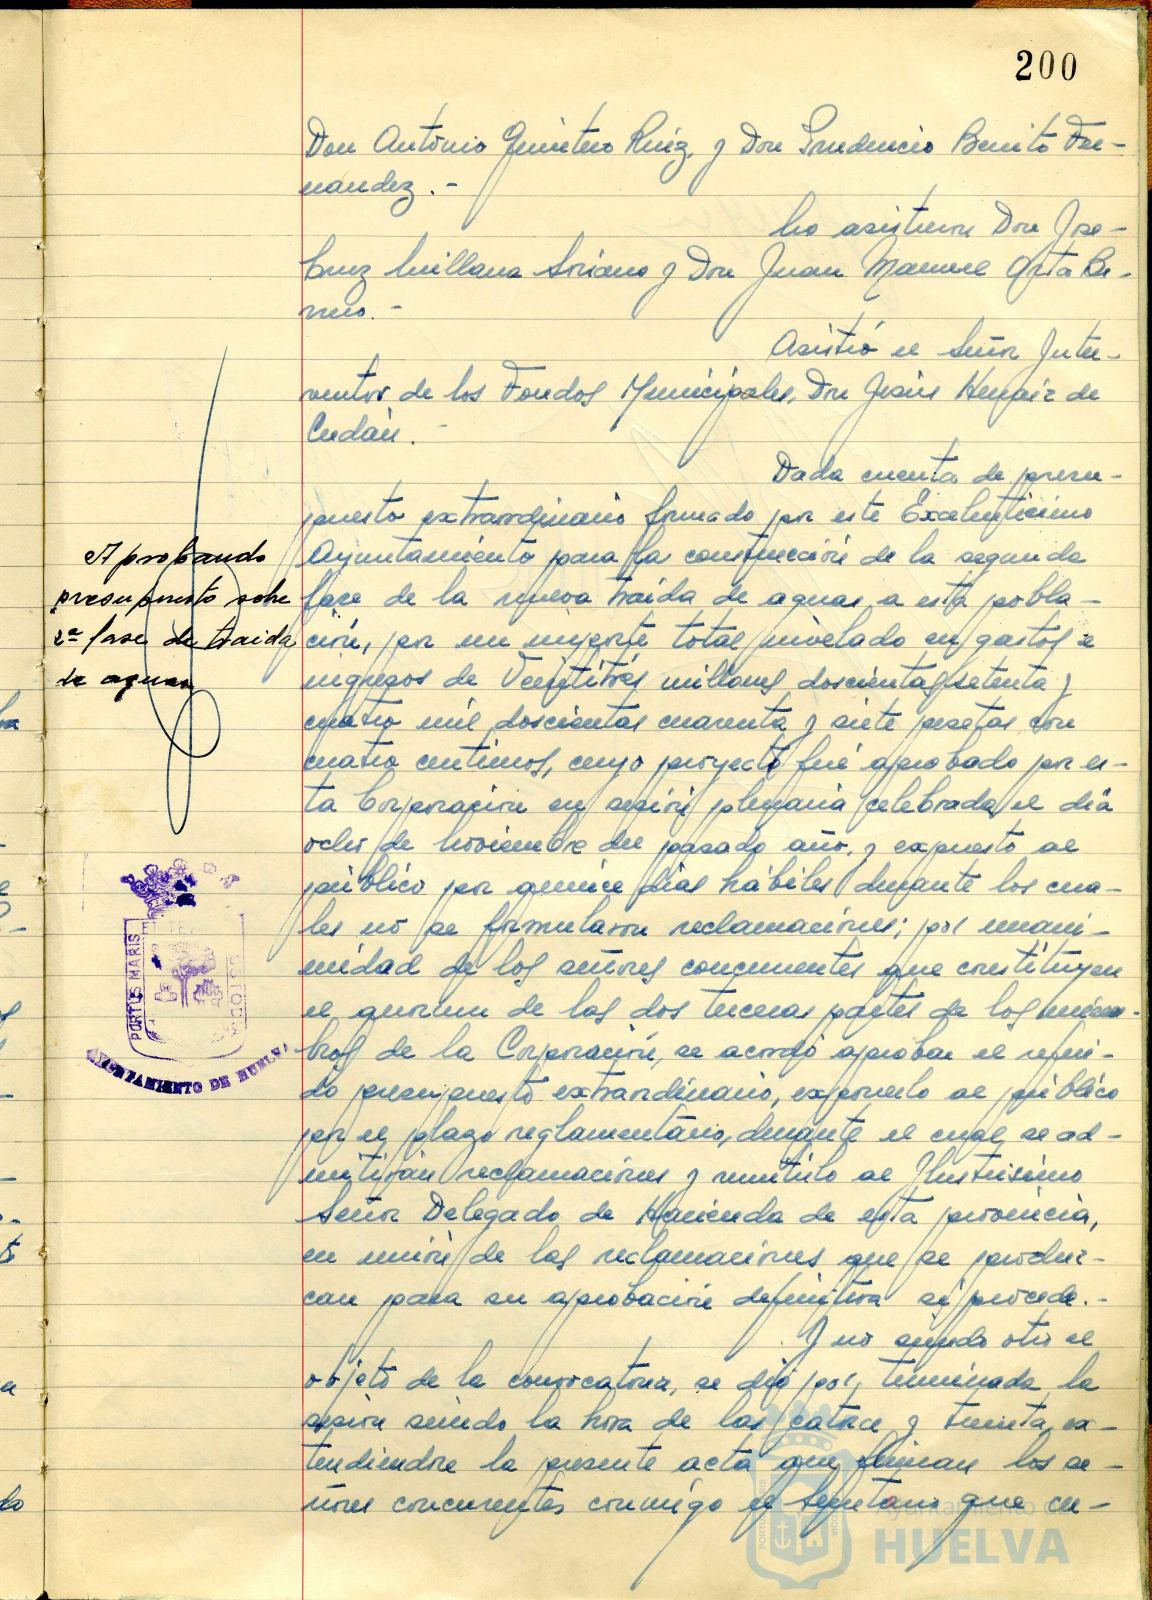 200
Don Antonio Quintero Ruiz, y Don Prudencio Benito Fer-
nandez.-
No asistieron Don Jose-
Cruz Millana Soriano y Don Juan Manuel Orta Be-
rro.-
Asistió el Señor Inter-
ventor de los Fondos Municipales, Don Jesús de
Dada cuenta de presu-
puesto extraordinario formado por este Excelentísimo
Ayuntamiento para la construcción de la segunda
fase de la nueva traida de aguas a esta pobla-
ción, por un importe total nivelado en gastos e
ingresos de Veintitrés millones doscientas setenta y
cuatro mil doscientas cuarenta y siete pesetas con
cuatro centimos, cuyo proyecto fué aprobado por es-
ta Corporación en sesión plenaria celebrada el día
ocho de Noviembre del pasado año, y expuesto al
público por quince días hábiles durante los cua-
les no se formularon reclamaciones; por unani-
midad de los señores concurrentes que constituyen
el quorum de las dos terceras partes de los miem-
bros de la Corporación, se acordó aprobar el referi-
do presupuesto extraordinario, exponerlo al público
por el plazo reglamentario, durante el cual se ad-
mitirán reclamaciones y remitirlo al Ilustrisimo
Señor Delegado de Hacienda de esta provincia,
en unión de las reclamaciones que se produz-
can para su aprobación definitiva si procede.-
Y no siendo otro el
objeto de la convocatoria, se dió por terminada la
sesión siendo la hora de las catorce y treinta, ex-
tendiendose la presente acta que firman los se-
ñores concurrentes conmigo el Secretario que cer-
Aprobando
presupuesto sobre
2ª fase de traida
de aguas
PORTUS MARIS
CUSTODIA
AYUNTAMIENTO DE HUELVA
Ayuntamiento de
HUELVA